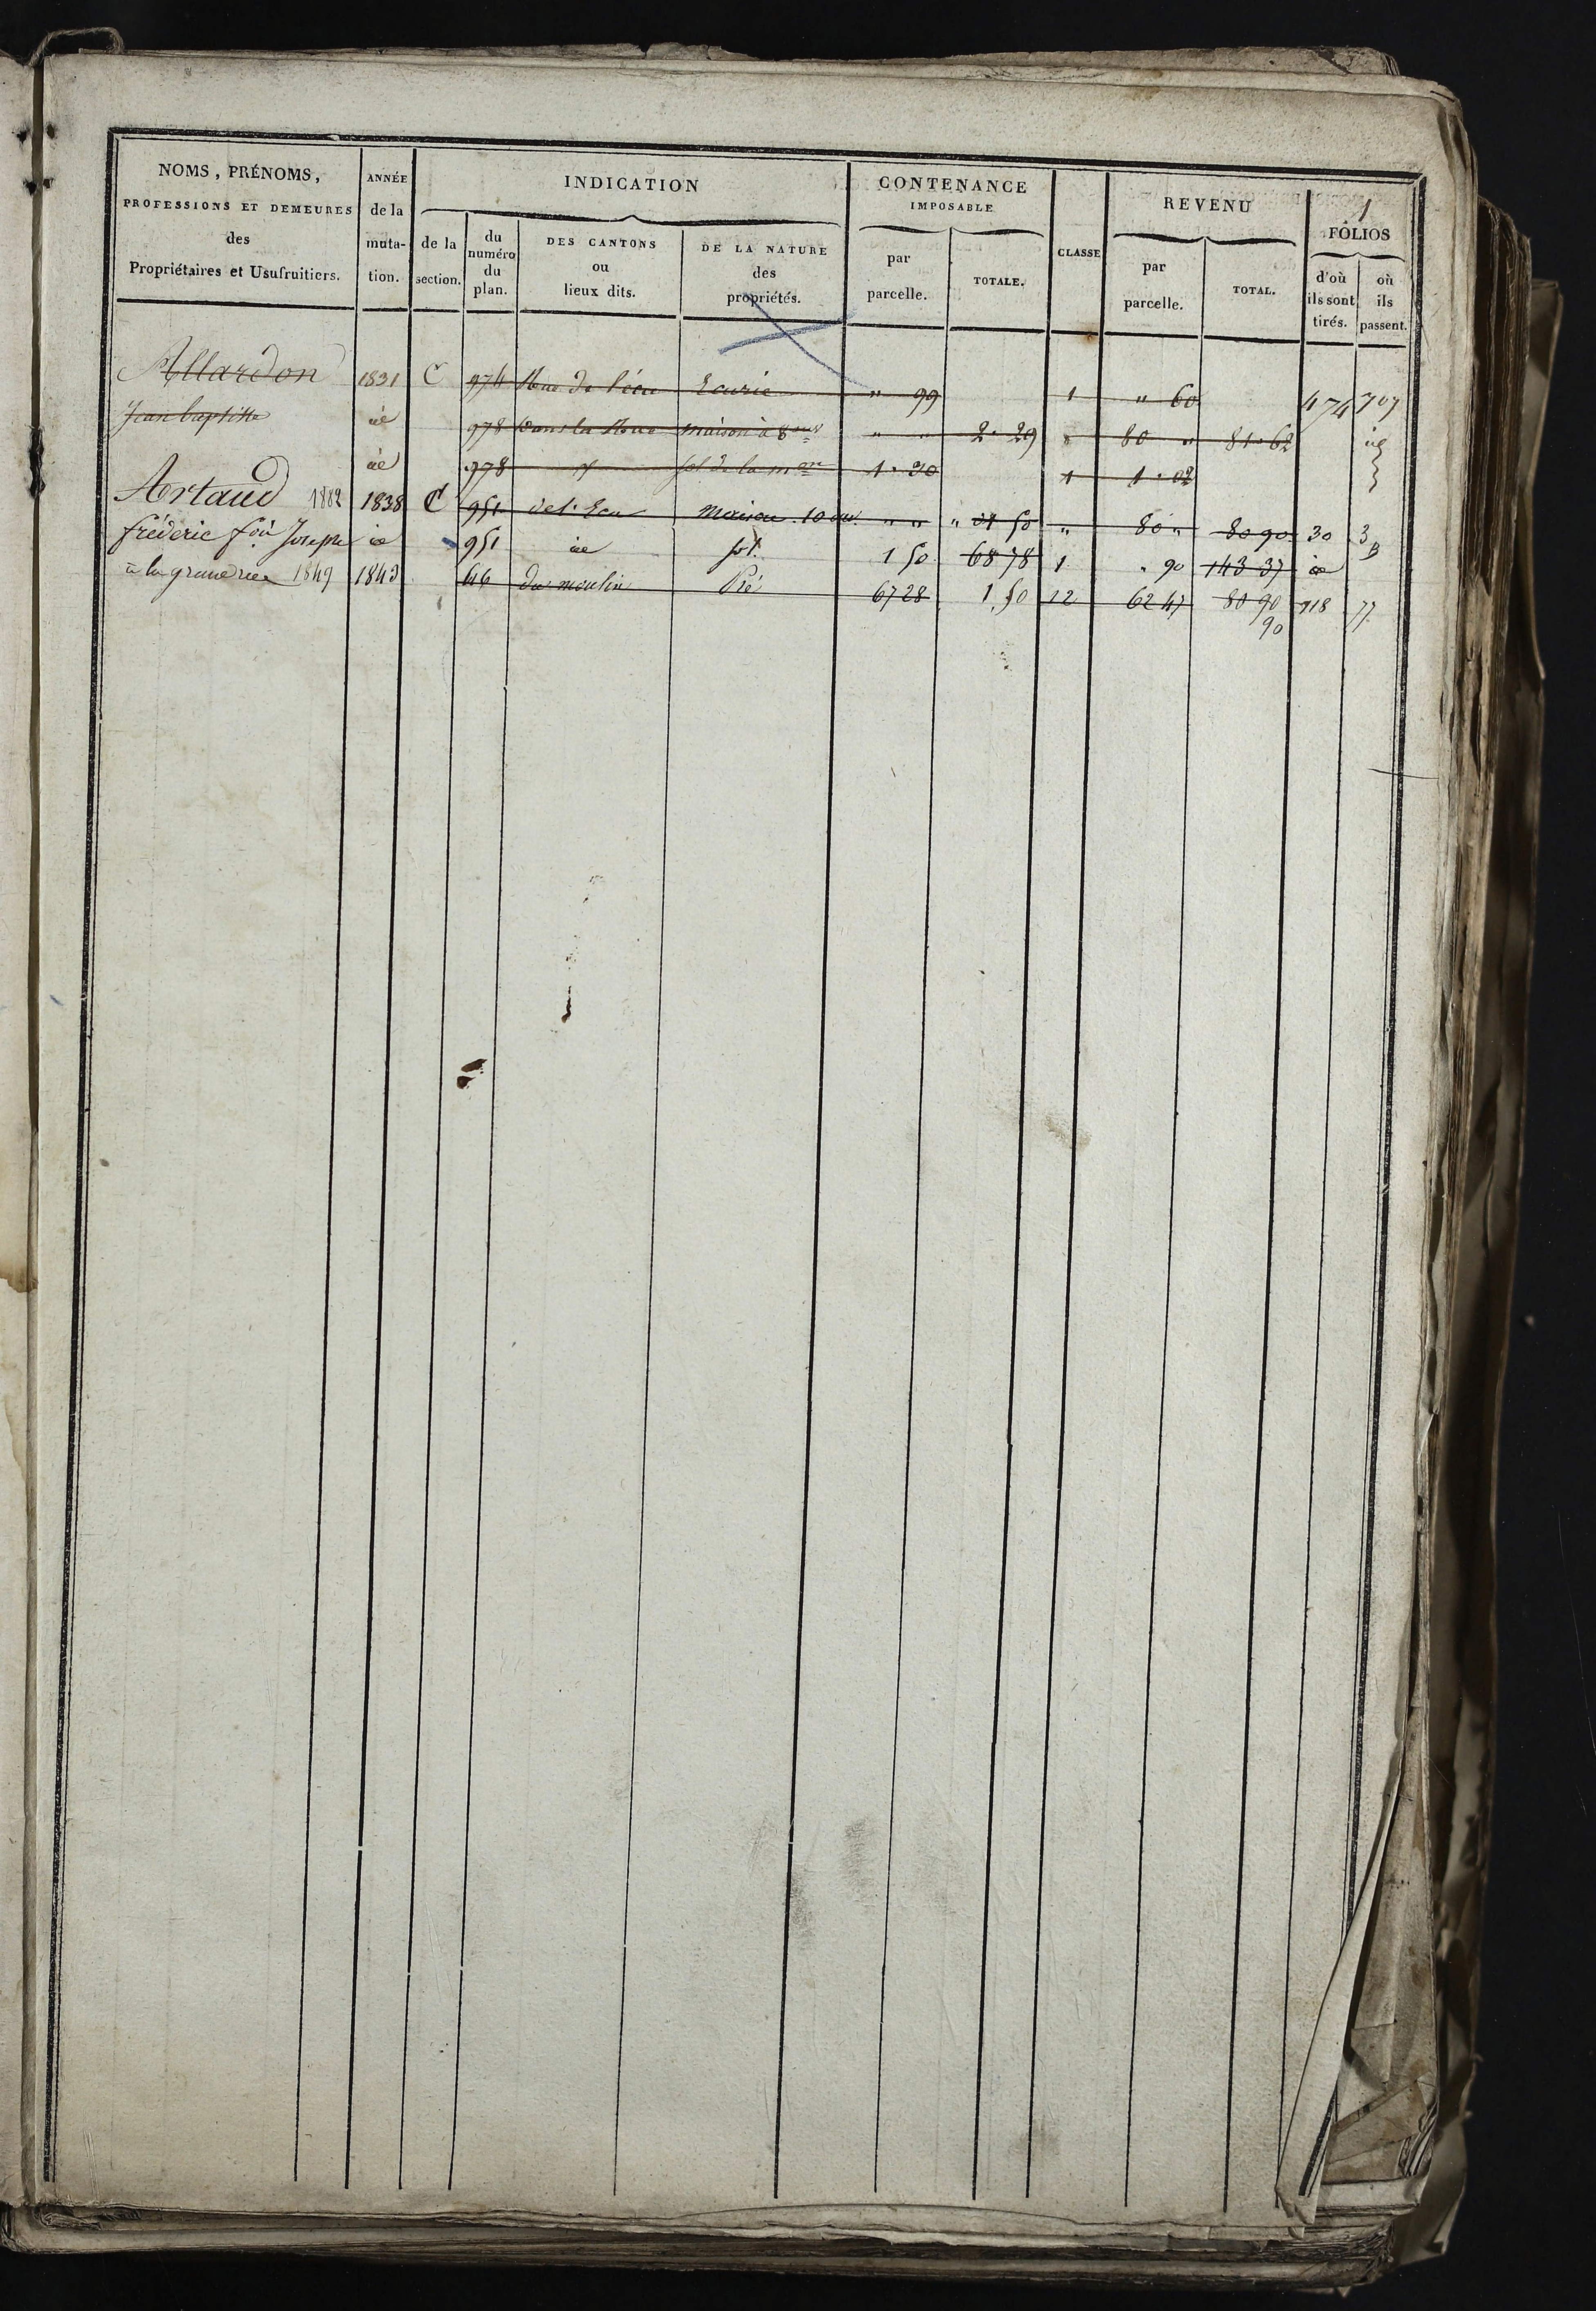 NOMS, PRÉNOMS,
PROFESSIONS ET DEMEURES
des
Propriétaires et Usufruitiers.
ANNÉE
de la
muta-
tion.
INDICATION
de la
section.
du
numéro
du
plan.
DES CANTONS
ou
lieux dits.
DE LA NATURE
des
propriétés.
CONTENANCE
IMPOSABLE
par
parcelle.
TOTALE.
CLASSE
REVENU
par
parcelle.
TOTAL.
1
FOLIOS
d'où
ils sont
tirés.
où
ils
passent.
Allardon 1831 C 974 Rue de l'écu Ecurie " 99 1 " 60 474 707
Jean baptiste id 978 dans la Rue maison à 8 " " 2.29 " 80 " 81.62 id
id 978 id sol de la mon 1.30 1 1.02
Artaud 1882 1838 C 951 de l'Ecu Maison 10 ouv. " " " 01 50 " 80 " 80 90 30 3
fréderic Joseph id 951 id sol. 1 50 68 78 1 " 90 143 37 id
à la grande rue 1849 1843 46 du moulin Pré 67 28 1.50 12 62 47 80 90 118 77
90